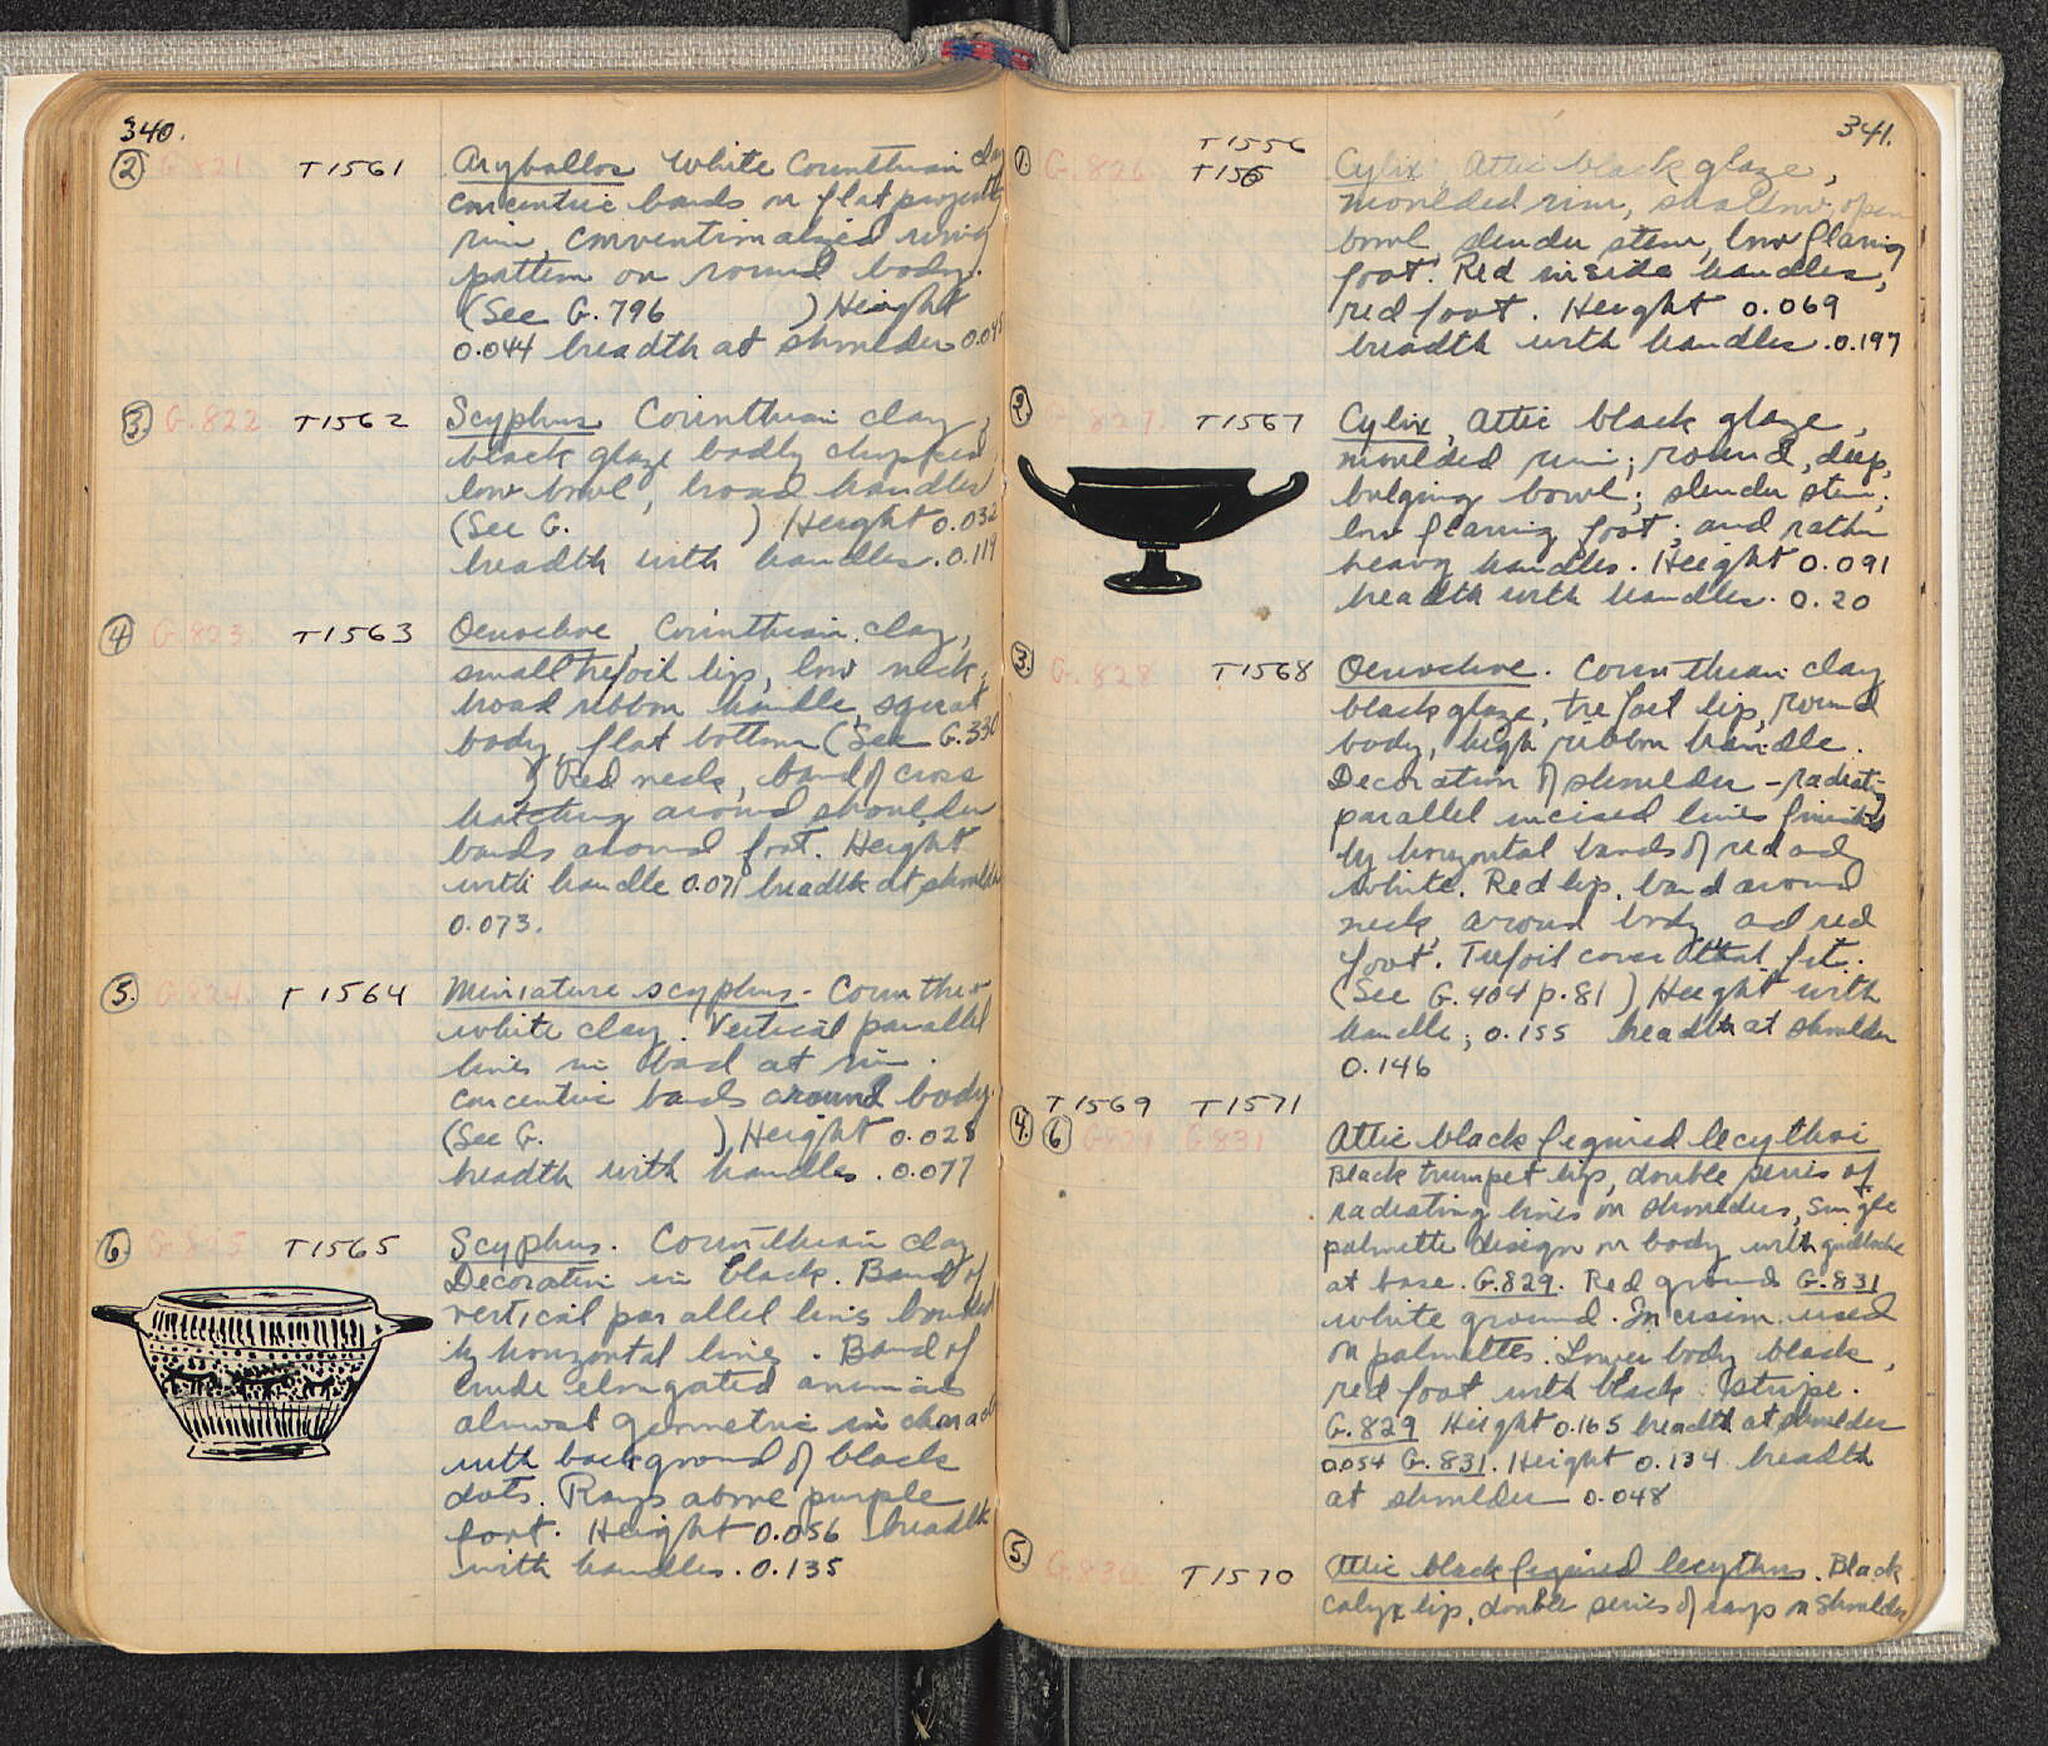 340.
② G.821 T1561 Aryballos White Corinthian clay
concentric bands on flat projecting
rim, conventionalized wing
pattern on round body.
(See G. 796 ) Height
0.044 breadth at shoulder
③ G.822 T1562 Scyphus. Corinthian clay,
black glaze badly chipped
low bowl, broad handles
(See G. ) Height 0.032
breadth with handles. 0.119
④ G.823 T1563 Oenochoe, Corinthian clay,
small trefoil lip, low neck,
broad ribbon handle, squat
body, flat bottom (See G.330
) Red neck, band of cross
hatching around shoulder
bands around foot. Height
with handle 0.071 breadth at shoulder
0.073.
⑤ G.824. T 1564 Miniature scyphus - Corinthian
white clay. Vertical parallel
lines in band at rim.
concentric bands around body.
(See G. ) Height 0.028
breadth with handles. 0.077
⑥ G.825 T1565 Scyphus. Corinthian clay
Decoration in black. Band of
vertical parallel lines bounded
by horizontal lines. Band of
crude elongated animals
almost geometric in character
with background of black
dots. Rays above purple
foot. Height 0.056 breadth
with handles. 0.135
341.
T1556
① G.826 T156 Cylix, Attic black glaze,
moulded rim, shallow, open
bowl, slender stem, low flaring
foot. Red inside handles,
red foot. Height 0.069
breadth with handles. 0.197
② G.827. T1567 Cylix, Attic black glaze,
moulded rim; round, deep,
bulging bowl; slender stem;
low flaring foot; and rather
heavy handles. Height 0.091
breadth with handles. 0.20
③ G.828 T1568 Oenochoe. Corinthian clay
black glaze, trefoil lip, round
body, high ribbon handle.
Decoration of shoulder - radiating
parallel incised lines finished
by horizontal bands of red and
white. Red lip, band around
neck, around body and red
foot. Trefoil cover that fit.
(See G. 404 p. 81) Height with
handle; 0.155 breadth at shoulder
0.146
T1569 T1571
④ ⑥ G829 G831 Attic black figured lecythoi
Black trumpet lip, double series of
radiating lines on shoulders, single
palmette design on body with guilloche
at base. G.829. Red ground G.831
white ground. Incision used
on palmettes. Lower body black,
red foot with black stripe.
G.829 Height 0.165 breadth at shoulder
0.054 G.831. Height 0.134 breadth
at shoulder 0.048
⑤ G.830 T1570 Attic black figured lecythus. Black
calyx lip, double series of rays on shoulder